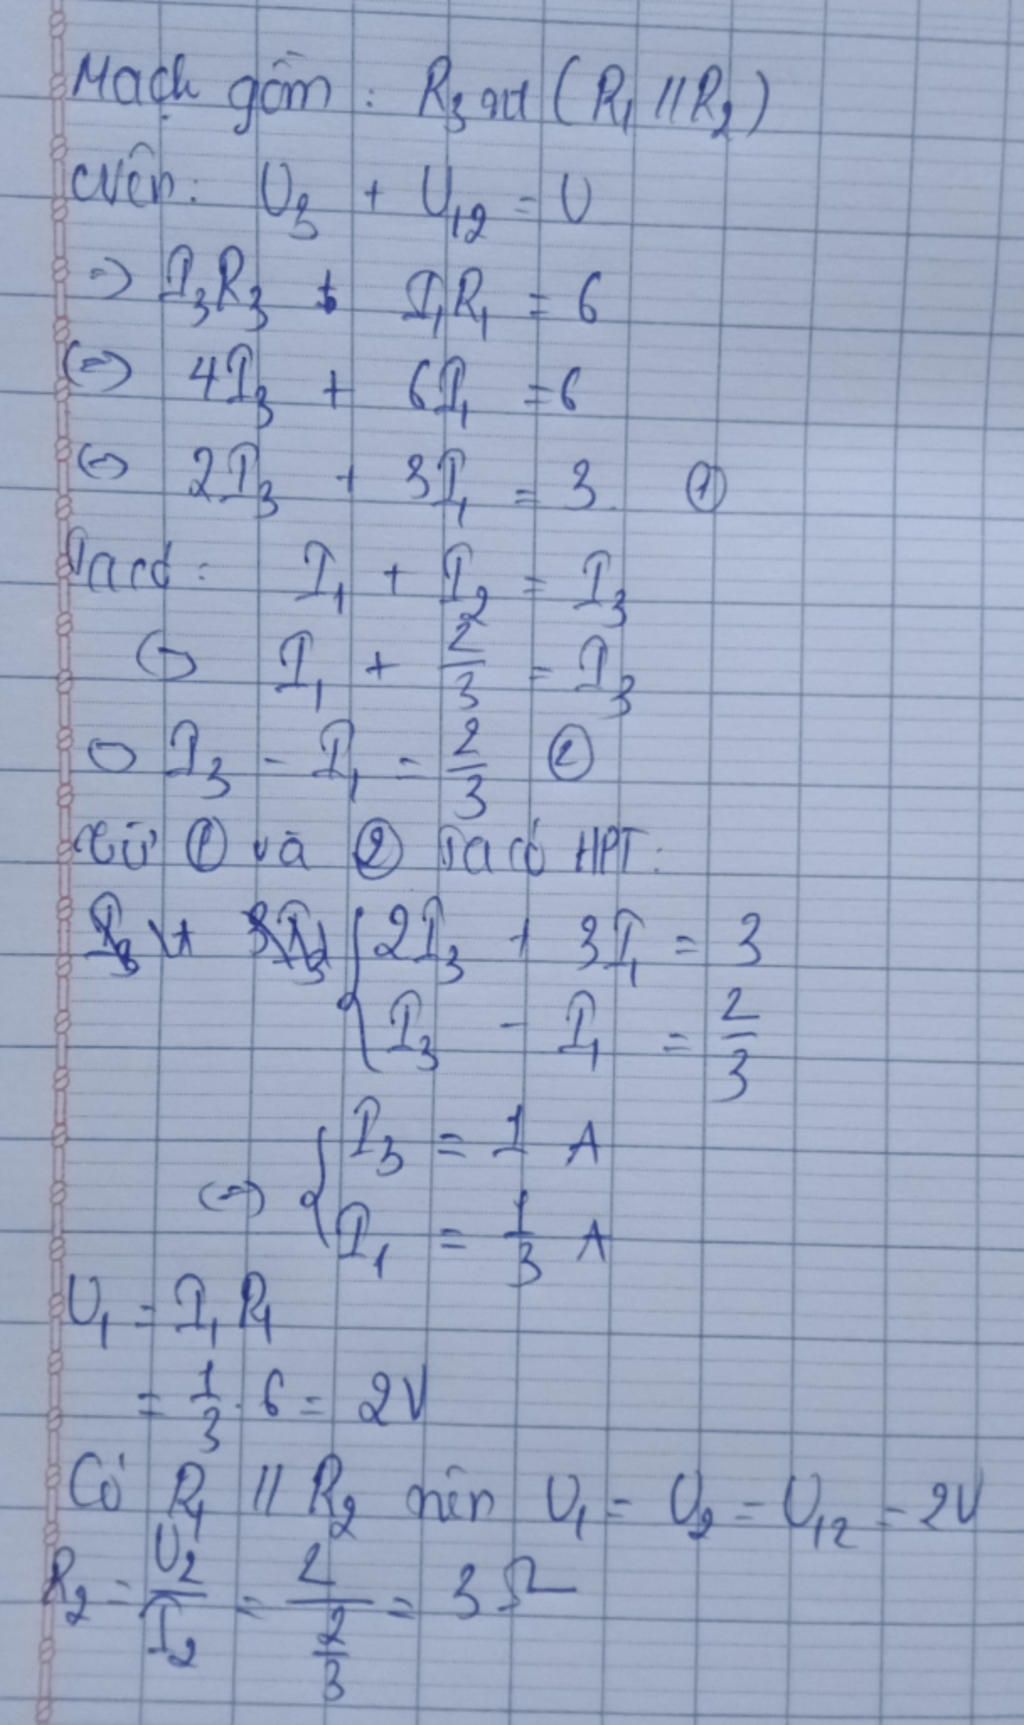 Mạch gồm: R₃ nt (R₁ // R₂)
nên: U₃ + U₁₂ = U
=> I₃R₃ + I₁R₁ = 6
<=> 4I₃ + 6I₁ = 6
<=> 2I₃ + 3I₁ = 3 ①
Ta có: I₁ + I₂ = I₃
<=> I₁ + 2/3 = I₃
<=> I₃ - I₁ = 2/3 ②
Từ ① và ② Ta có HPT:
{ 2I₃ + 3I₁ = 3
I₃ - I₁ = 2/3
<=> { I₃ = 1 A
I₁ = 1/3 A
U₁ = I₁ R₁
= 1/3 . 6 = 2V
Có R₁ // R₂ nên U₁ = U₂ = U₁₂ = 2V
R₂ = U₂/I₂ = 2/(2/3) = 3 Ω